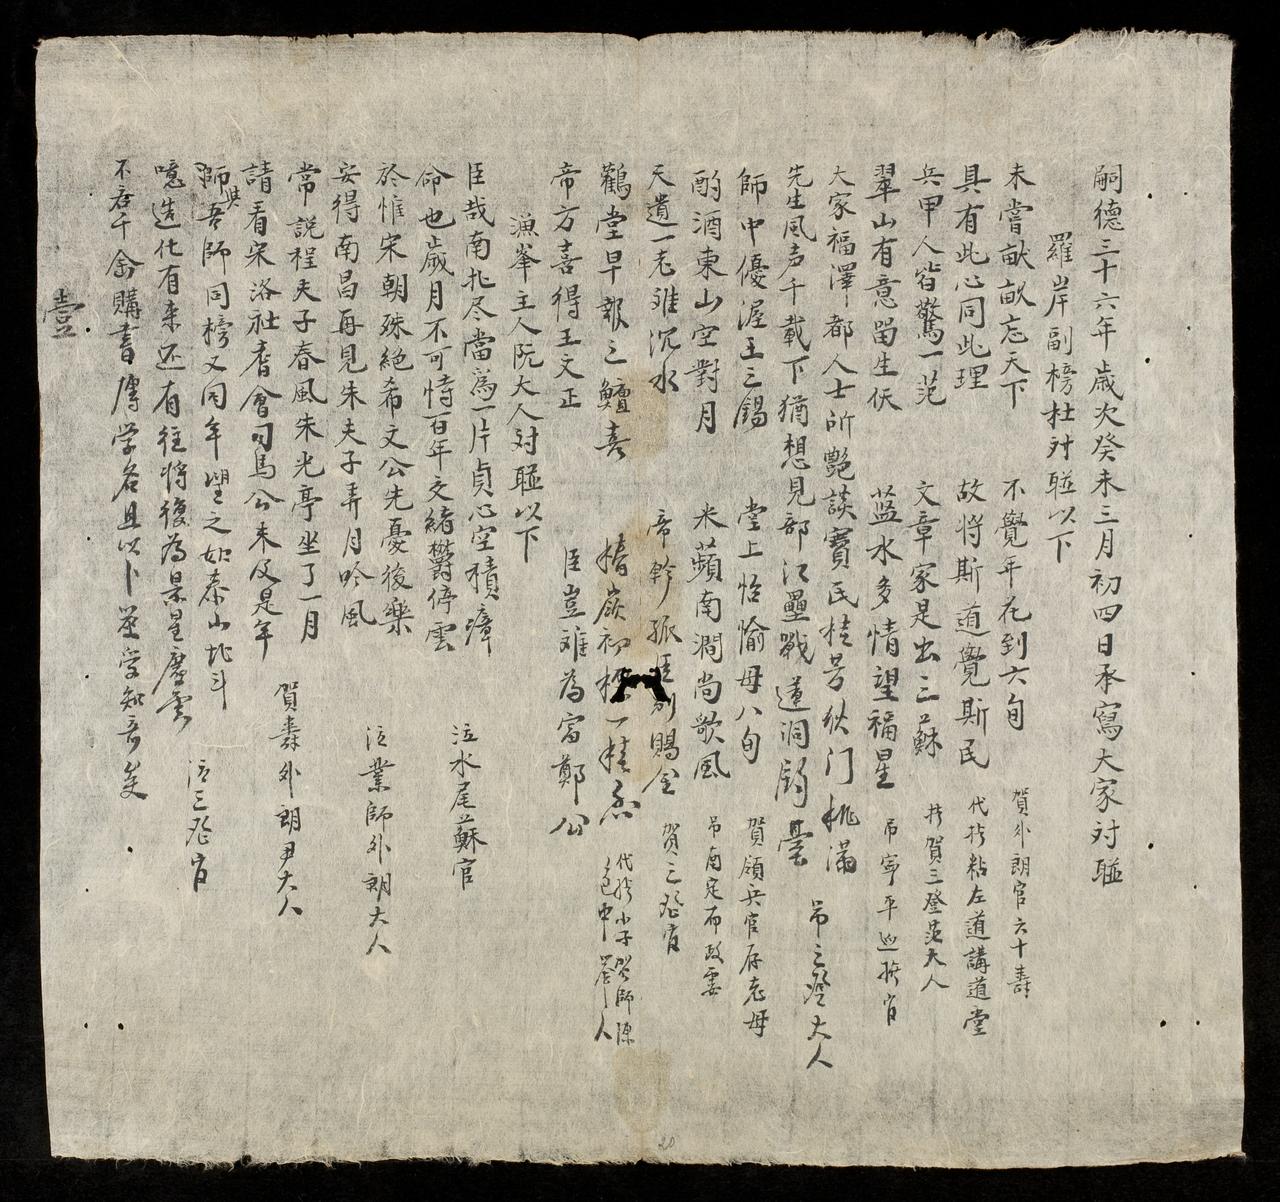 嗣德三十六年歲次癸未三月初四日承寫大家対聯
羅岸副榜杜対聯以下
未嘗畝畝忘天下 不覺年花到六旬 賀外朗官六十壽
具有此心同此理 故将斯道覺斯民 代撰粘左道講道堂
兵甲人皆驚一范 文章家是出三蘇 撰賀三登范大人
翠山有意留生佚 藍水多情望福星 吊寧平巡撫官
大家福澤都人士所艷談竇民桂芳狄门桃滿
先生風声千載下猶想見部江壘戰蓮洞 吊三登大人
師中優渥王三錫 堂上怡愉母八旬 賀領兵官存老母
酌酒東山空對月 米蘋南澗尚歌風 吊南定布政
天遺一老难沉水 帝軫孤臣 賜金 賀三登官
鸛堂早報三鱣喜 椿 初 一桂 代撰小子
帝方喜得王文正 臣豈难為富鄭公
漁峯主人阮大人対聯以下
臣哉南北尽當為一片貞心空積瘴
命也歲月不可恃百年文緒欝停雲 泣水尾蘇官
於惟宋朝殊絶希文公先憂後樂
安得南昌再見朱夫子弄月吟風 泣業師外朗大人
常説程夫子春風朱光亭坐了一月
請看宋洛社耆會司馬公未及是年 賀壽外朗尹大人
師與吾師同榜又同年望之如泰山北斗
噫造化有来还有往将復為景星慶雲 泣三登官
不吝千金購書 学名且以卜 学知音矣
壹
20